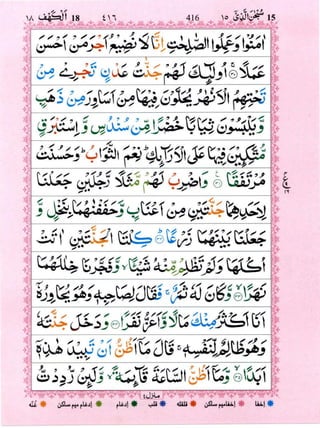 سُبْحٰنَ الَّذِيْ ١٥ 15
416 ٤١٦
١٨ اَلْكَهْف 18
اٰمَنُوْا وَعَمِلُوا الصّٰلِحٰتِ اِنَّا لَا نُضِيْعُ اَجْرَ مَنْ اَحْسَنَ
عَمَلًا ۚ اُولٰٓئِكَ لَهُمْ جَنّٰتُ عَدْنٍ تَجْرِيْ مِنْ
تَحْتِهِمُ الْاَنْهٰرُ يُحَلَّوْنَ فِيْهَا مِنْ اَسَاوِرَ مِنْ ذَهَبٍ
وَّيَلْبَسُوْنَ ثِيَابًا خُضْرًا مِّنْ سُنْدُسٍ وَّاِسْتَبْرَقٍ
مُّتَّكِـِٕيْنَ فِيْهَا عَلَى الْاَرَآئِكِ ؕ نِعْمَ الثَّوَابُ ؕ وَحَسُنَتْ
مُرْتَفَقًا ۧ وَاضْرِبْ لَهُمْ مَّثَلًا رَّجُلَيْنِ جَعَلْنَا
لِاَحَدِهِمَا جَنَّتَيْنِ مِنْ اَعْنَابٍ وَّحَفَفْنٰهُمَا بِنَخْلٍ وَّ
جَعَلْنَا بَيْنَهُمَا زَرْعًا ؕ كِلْتَا الْجَنَّتَيْنِ اٰتَتْ
اُكُلَهَا وَلَمْ تَظْلِمْ مِّنْهُ شَيْـًٔا ۙ وَّفَجَّرْنَا خِلٰلَهُمَا
نَهَرًا ۙ وَّكَانَ لَهٗ ثَمَرٌ ۚ فَقَالَ لِصَاحِبِهٖ وَهُوَ يُحَاوِرُهٗٓ
اَنَا اَكْثَرُ مِنْكَ مَالًا وَّاَعَزُّ نَفَرًا وَدَخَلَ جَنَّتَهٗ
وَهُوَ ظَالِمٌ لِّنَفْسِهٖ ۚ قَالَ مَآ اَظُنُّ اَنْ تَبِيْدَ هٰذِهٖٓ
اَبَدًا ۙ وَّمَآ اَظُنُّ السَّاعَةَ قَآئِمَةً ۙ وَّلَئِنْ رُّدِدْتُّ
منزل٤
اخفا اخفاميم ساكن قلقله قلب ادغام ادغام ميم ساكن غنه